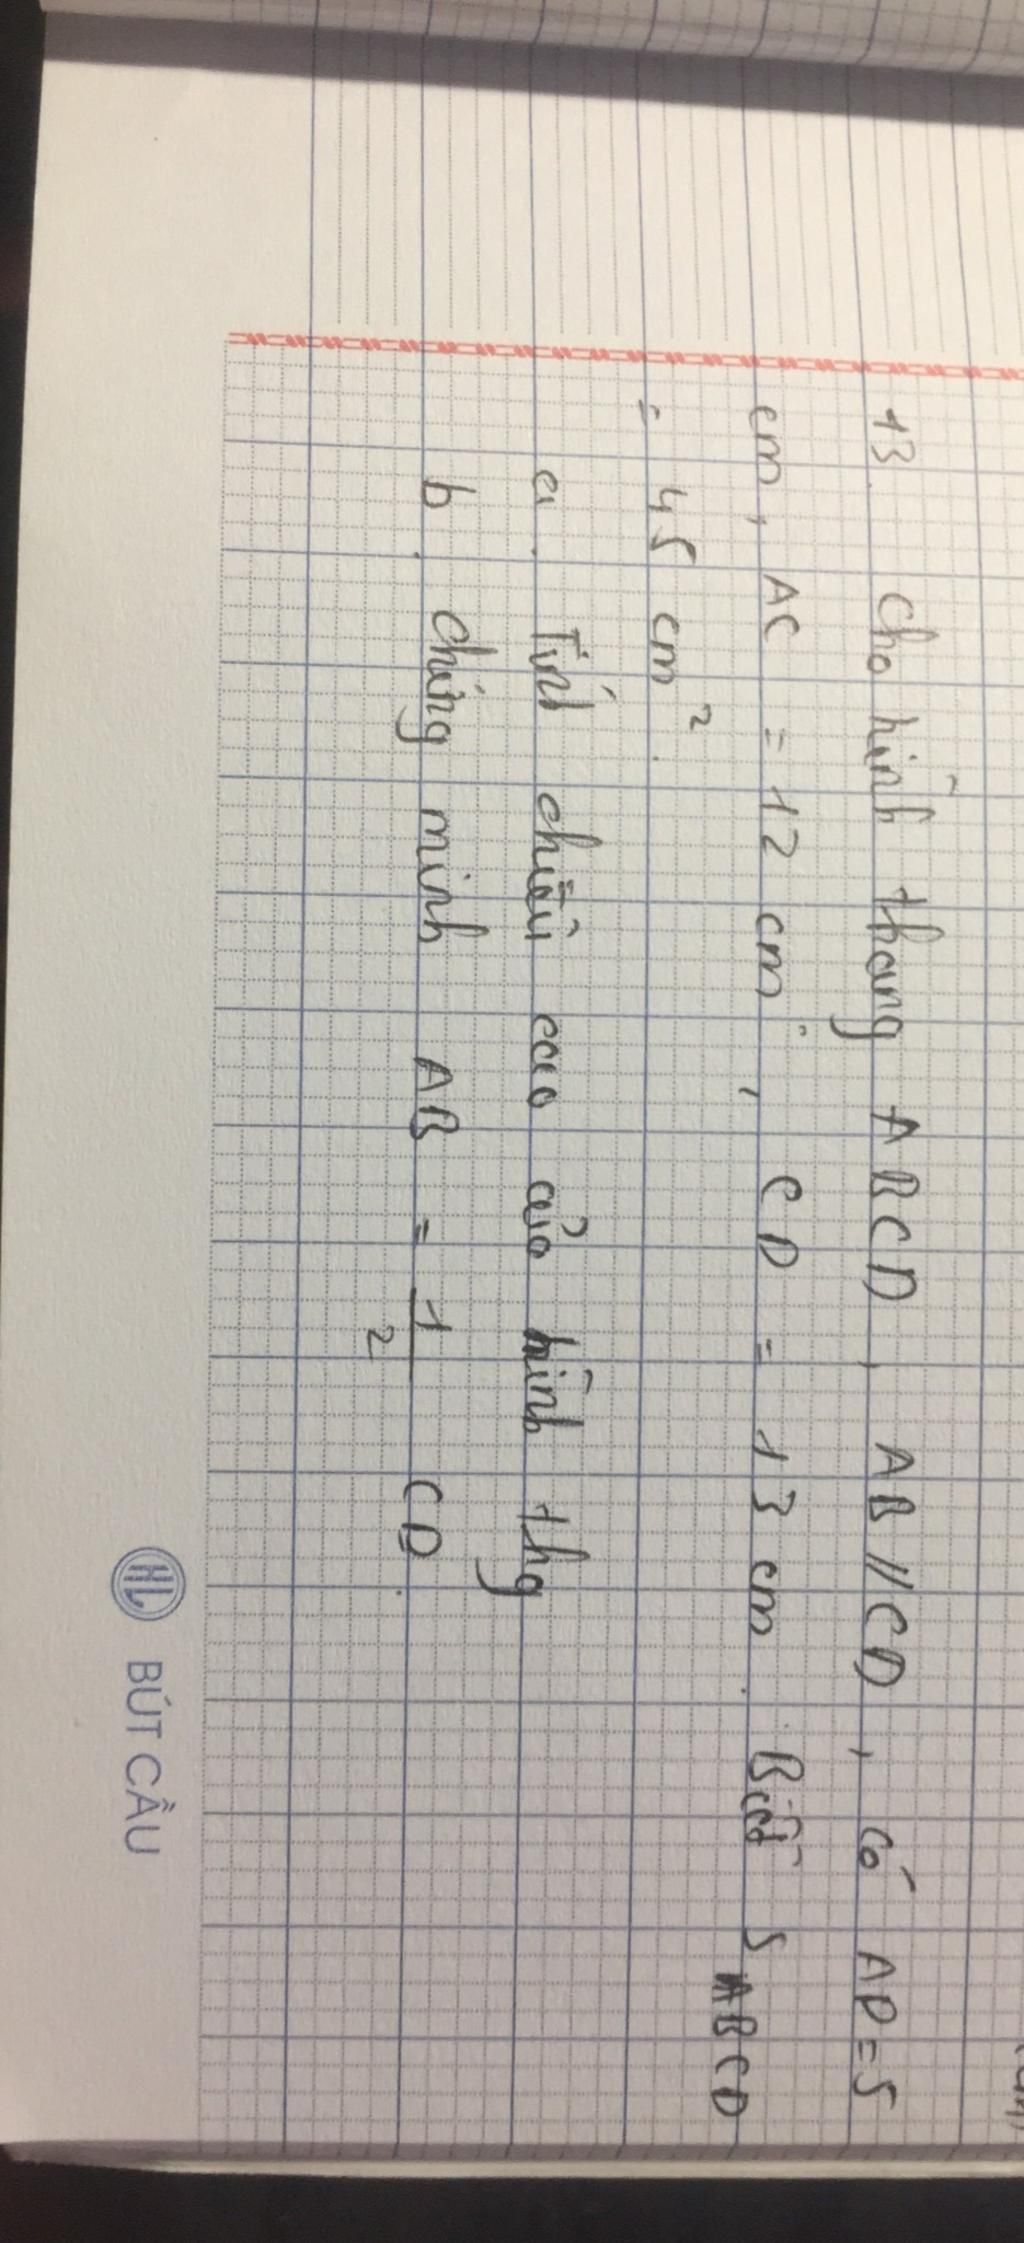 13. Cho hình thang ABCD, AB // CD, có AD = 5
cm, AC = 12 cm, CD = 13 cm. Biết S ABCD
= 45 cm²
a. Tính chiều cao của hình thg
b. Chứng minh AB = 1/2 CD.
HL BÚT CẦU